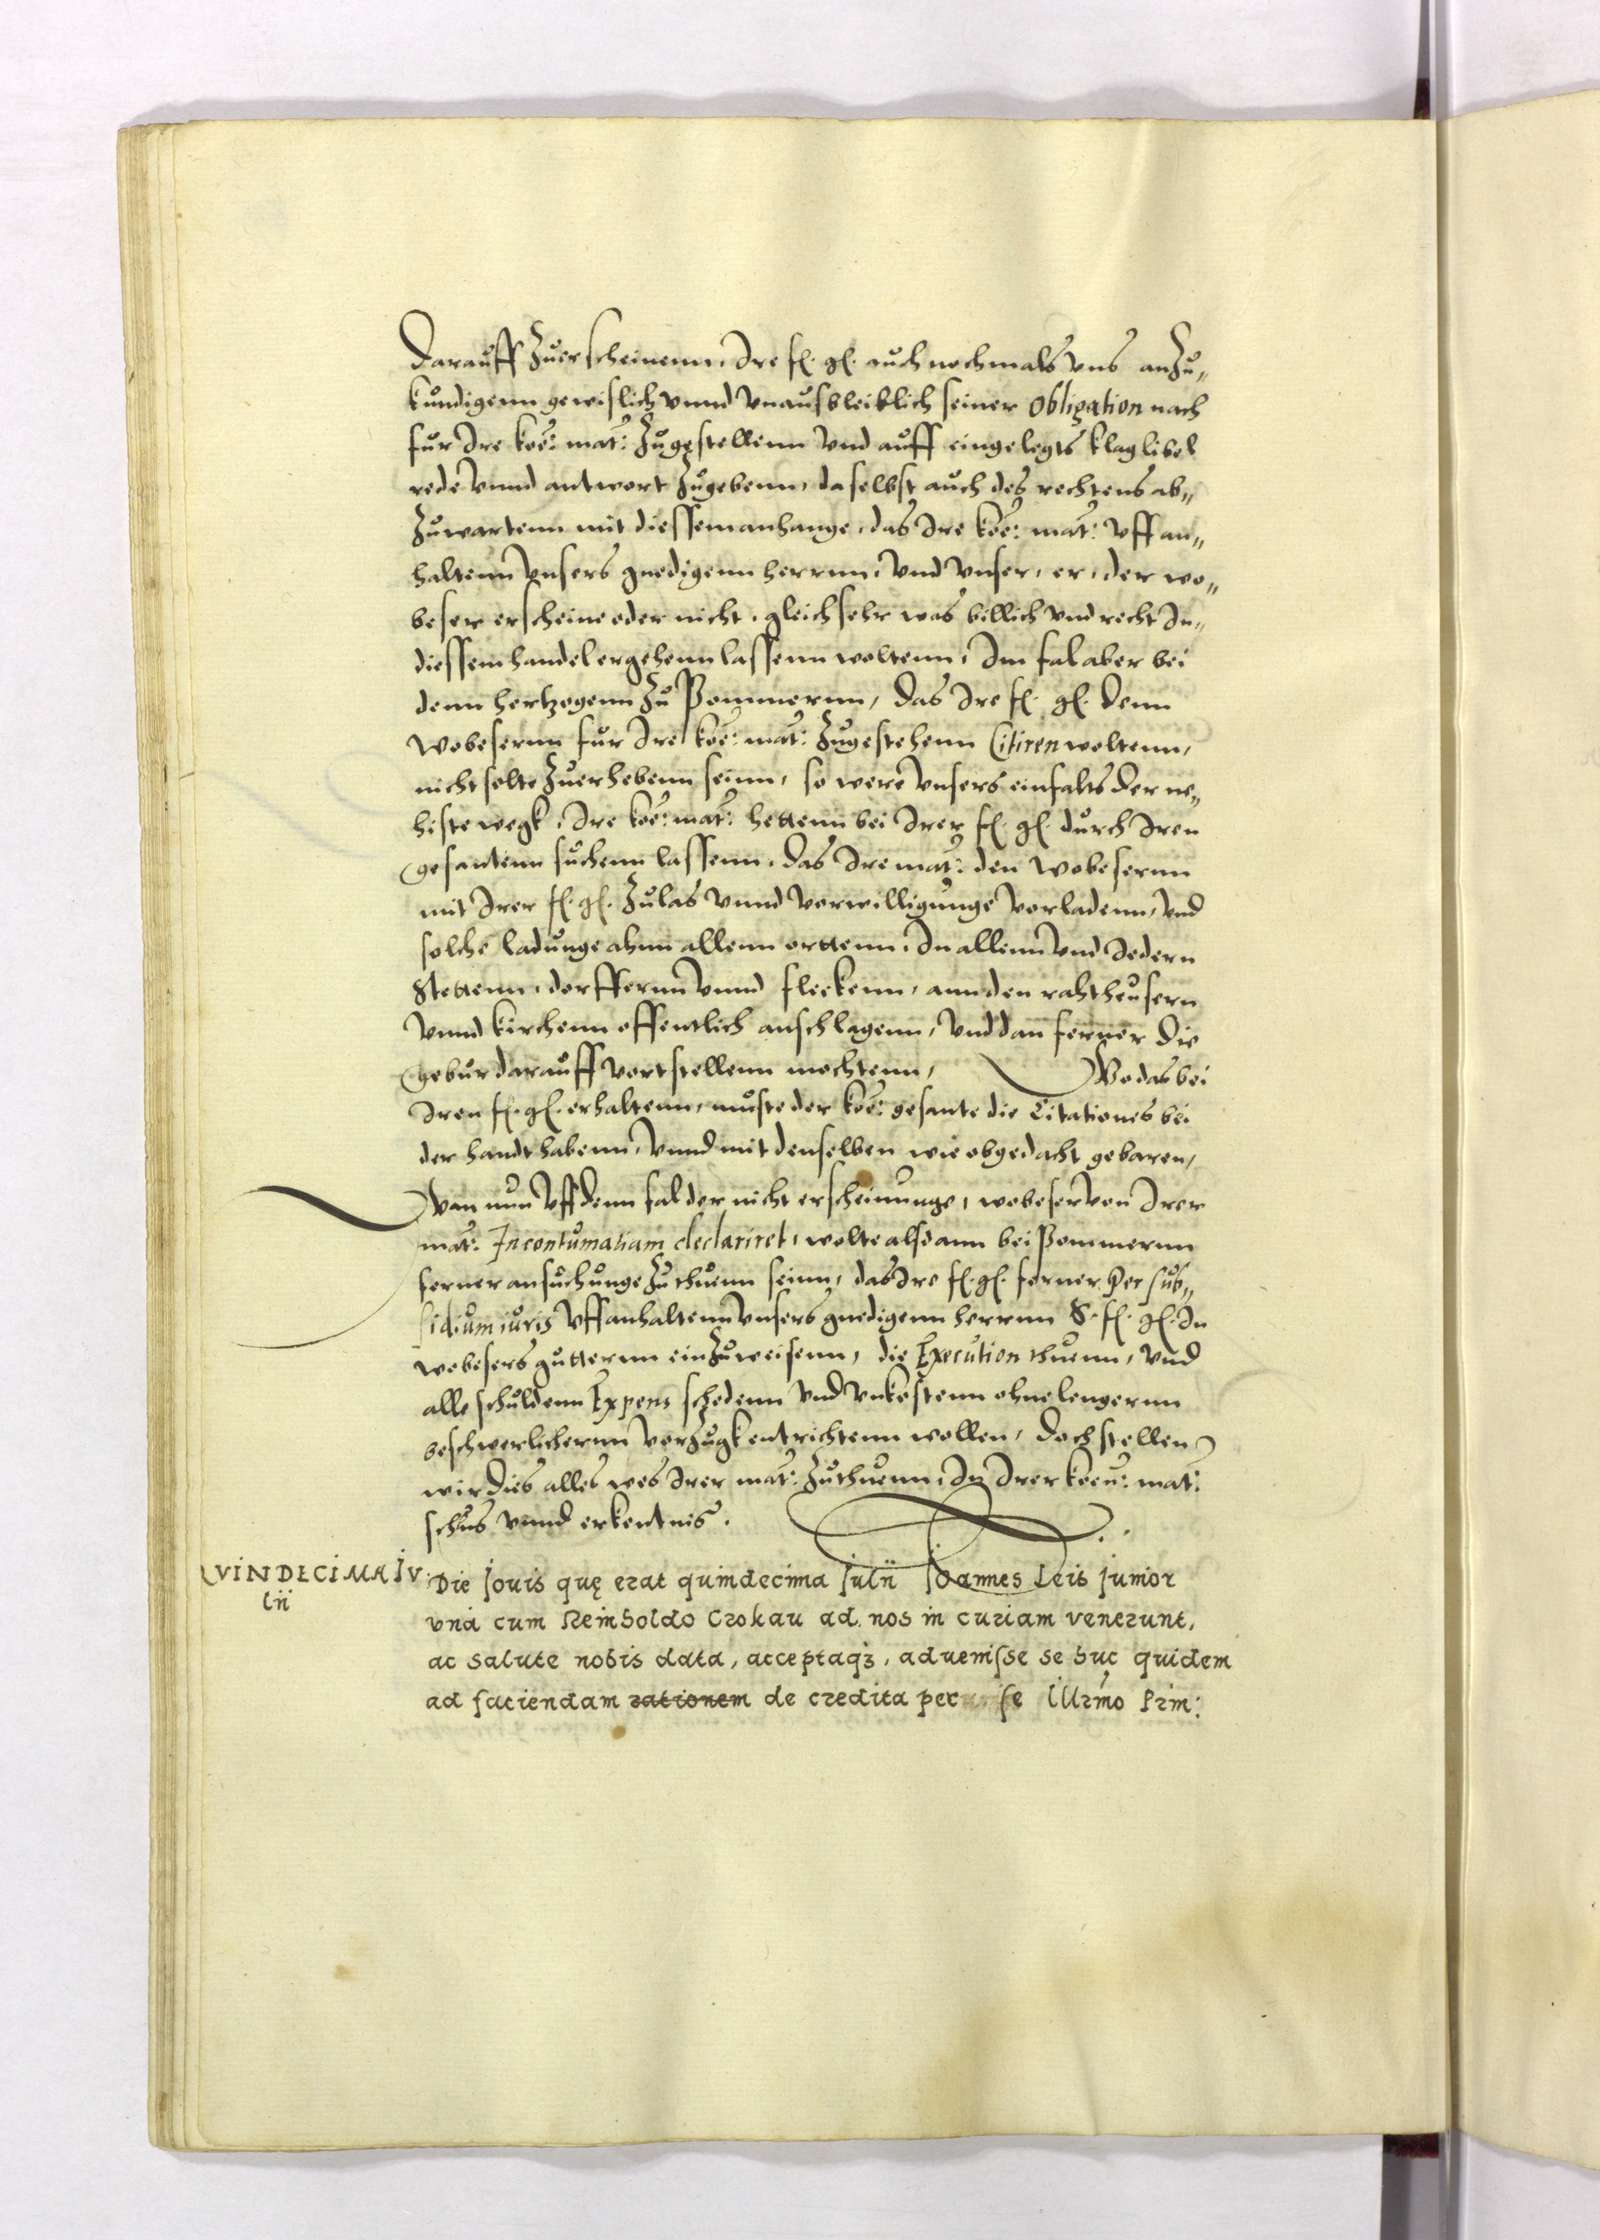 Darauff Zuerscheinenn, Ire f. g. auch nochmals vns anzu„
kundigenn gewislich vnnd vnausbleiblich seiner Obligation nach
fur Ire koē: mat: Zugestellenn vnd auff eingelegts klaglibel
rede vnnd antwort Zugebenn, daselbst auch des rechtens ab„
Zuwartenn mit diessem anhange, das Ire koē: mat: vff an„
haltenn vnsers gnedigenn herrnn, vnd vnser, er, der wo„
beser erscheine oder nicht, gleich sehr was billich vnd recht In„
diessem handel ergehenn lassenn woltenn, Im fal aber bei
denn hertzogenn Zu Pommernn, das Ire f. g. denn
Wobesernn fur Ire koē: mat: Zugestehenn Citiren woltenn,
nicht solte Zuerhebenn seinn, so were vnsers einfalts der ne„
heste wegk, Ire koē: mat: hettenn bei Irer f. g. durch Iren
gesantenn suchenn lassenn, das Ire mat: den Wobesernn
mit Irer f. g. Zulas vnnd vorwilligunge vorladenn, vnd
solche ladunge ahnn allenn orttenn, In allenn vnd Iedern
Stettenn, dorffernn vnnd fleckenn, ann den rahtheusern
vnnd kirchenn offentlich anschlagenn, vnd dan ferner die
gebur darauff vortstellenn mochtenn, Wo das bei
Iren f. g. erhaltenn, muste der koē: gesante die Citationes bei
der handt habenn, vnnd mit denselben wie obgedacht gebaren,
Wan nun vff denn fal der nicht erscheinunge, wobeser von Irer
mat: In contumatiam declariret, wolte alsdann bei Pommernn
ferner ansuchunge Zuthuenn seinn, das Ire f. g. ferner Per sub„
sidium iuris vff anhaltenn vnsers gnedigenn herrnn S. f. g. In
wobesers gutternn einZuweisenn, die Execution thuenn, vnd
alle schuldenn Expens schedenn vnd vnkostenn ohne lengernn
beschwerlichernn vorzugk entrichtenn wollen, doch stellen
wir dies alles wes Irer mat: Zuthuenn, In Irer koen: mat:
schus vnnd erkentnis.
QVINDECIMA IV
lii
Die Iouis quę erat quindecima Iulii Ioannes Leis Iunior
vna cum Reinholdo Crokau ad nos in curiam venerunt,
ac salute nobis data, acceptaqȝ, aduenisse se huc quidem
ad faciendam rationem de credita pec se Illrmo Prin: